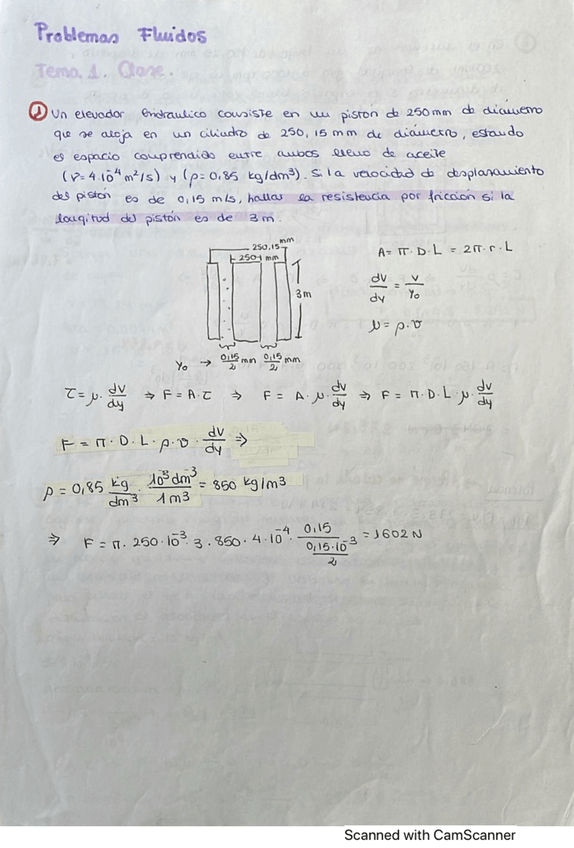 Problemas Fluidos
Tema 1. Clase.
① Un elevador hidraulico consiste en un pistón de 250mm de diámetro
que se aloja en un cilindro de 250,15 mm de diámetro, estando
es espacio comprendido entre ambos lleno de aceite
(ν=4·10⁻⁴ m²/s) y (ρ=0,85 kg/dm³). Si la velocidad de desplazamiento
del pistón es de 0,15 m/s, hallar la resistencia por fricción si la
longitud del pistón es de 3m.
250,15 mm
250 mm
3m
Y₀ → 0,15/2 mm 0,15/2 mm
A = π·D·L = 2π·r·L
dv/dy = v/y₀
μ = ρ·ν
τ = μ·dv/dy ⇒ F = A·τ ⇒ F = A·μ·dv/dy ⇒ F = π·D·L·μ·dv/dy
F = π·D·L·ρ·ν·dv/dy ⇒
ρ = 0,85 kg/dm³ · 10³dm³/1m³ = 850 kg/m³
⇒ F = π·250·10⁻³·3·850·4·10⁻⁴· 0,15/(0,15·10⁻³/2) = 1602 N
Scanned with CamScanner